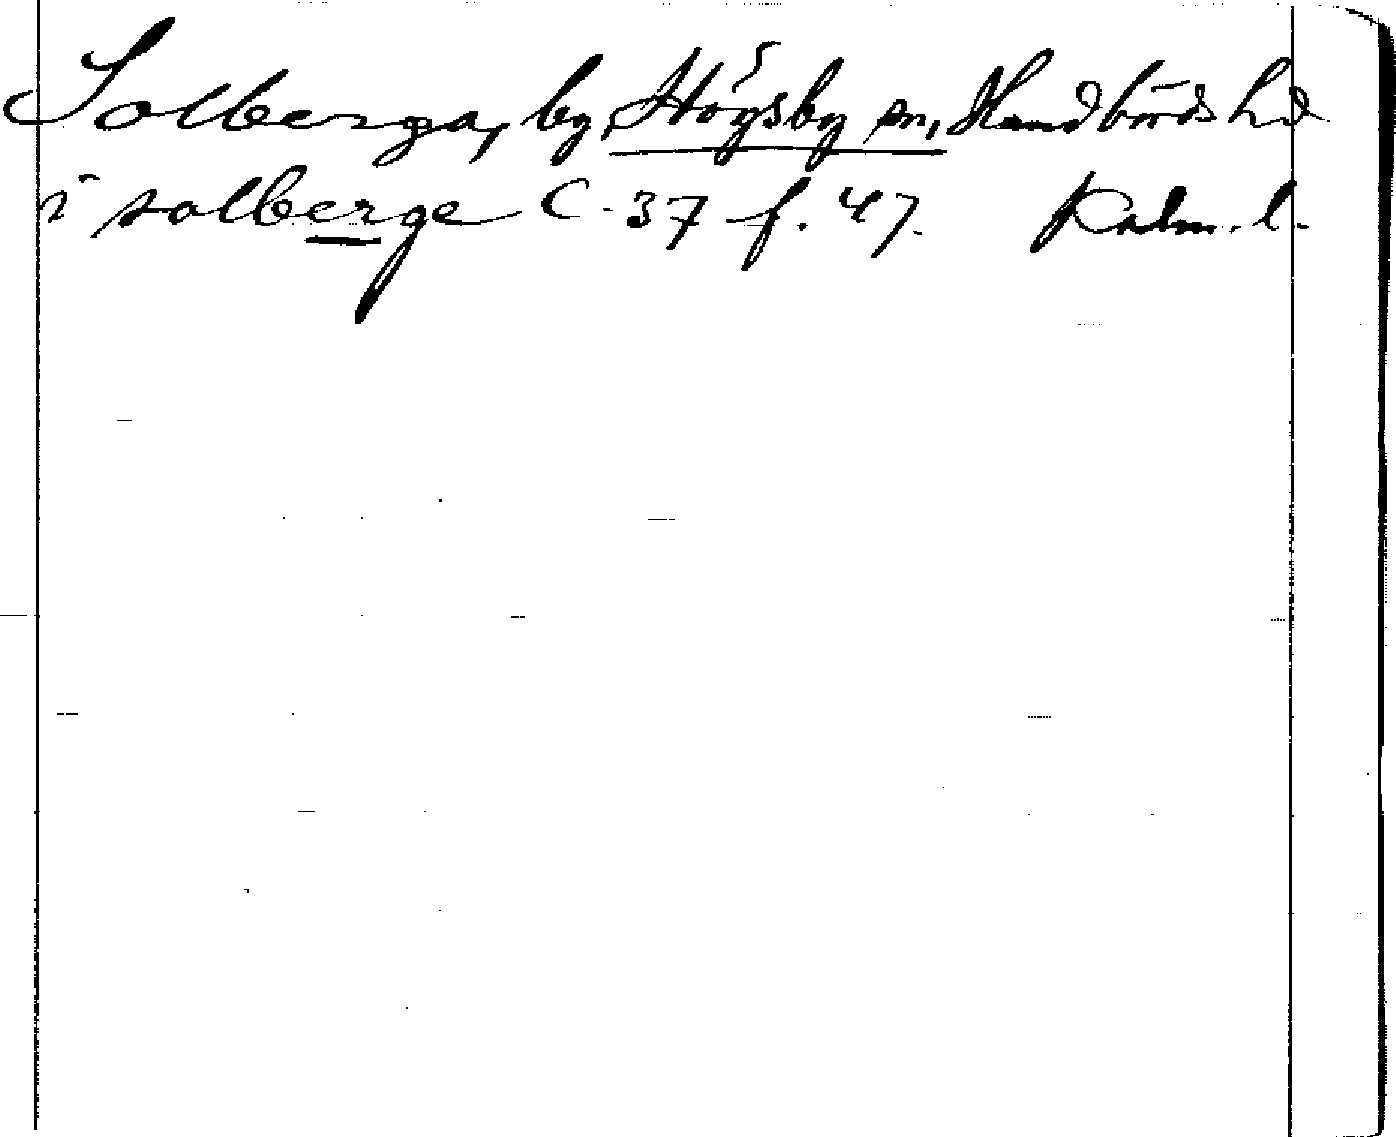 Solberga, by, Högsby sn, Handbörds hd
i solberge C 37 f. 47. Kalm. l.